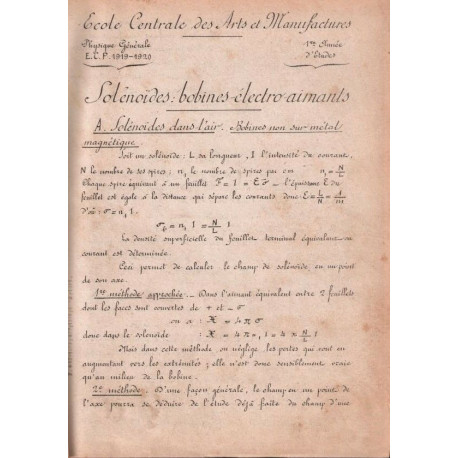 Ecole Centrale des Arts et Manufactures
Physique Générale
E.C.P. 1919-1920
1re Année
d'Etudes
Solénoïdes: bobines-électro-aimants
A. Solénoïdes dans l'air. Bobines non sur métal
magnétique.
Soit un solénoïde: L sa longueur, I l'intensité du courant,
N le nombre de ses spires; n, le nombre de spires par cm n, = N/L
Chaque spire équivaut à un feuillet F = I = Eσ - l'épaisseur E du
feuillet est égale à la distance qui sépare les courants donc: E = L/N = 1/n1
d'où: σ = n, I.
σ = n, I = N/L I
La densité superficielle du feuillet terminal équivalent au
courant est déterminée.
Ceci permet de calculer le champ de solénoïde, en un point
de son axe.
1re méthode approchée. - Dans l'aimant équivalent entre 2 feuillets
dont les faces sont couvertes de + et - σ
on a: H = 4πσ
donc dans le solénoïde: H = 4π n, I = 4π N/L I
Mais dans cette méthode on néglige les pertes qui vont en
augmentant vers les extrémités; elle n'est donc sensiblement vraie
qu'au milieu de la bobine.
2e méthode: D'une façon générale, le champ en un point de
l'axe pourra se déduire de l'étude déjà faite du champ d'une